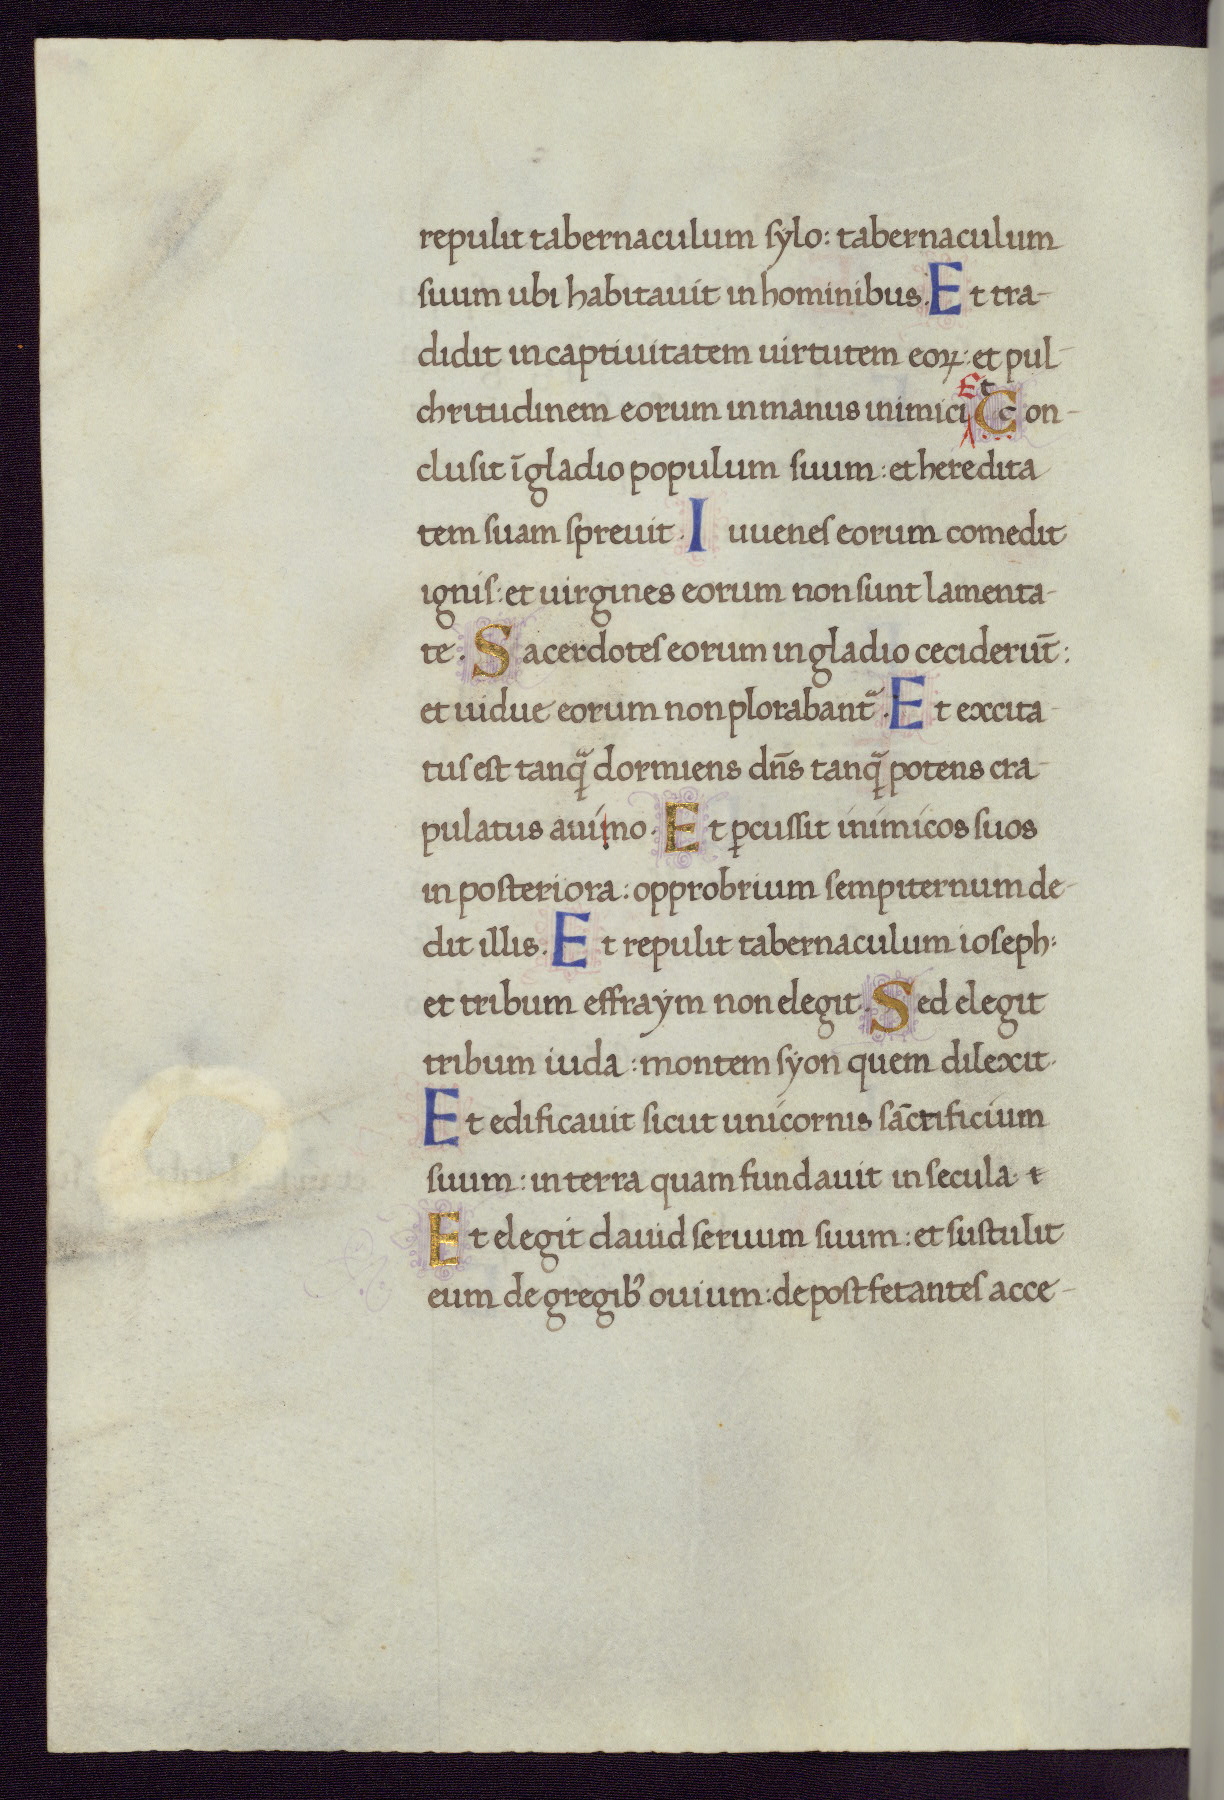 repulit tabernaculum sẏlo: tabernaculum
suum ubi habitauit in hominibus. Et tra-
didit in captiuitatem uirtutem eoꝝ: et pul-
chritudinem eorum in manus inimici Et Con-
clusit ī gladio populum suum: et heredita
tem suam spreuit. Iuuenes eorum comedit
ignis: et uirgines eorum non sunt lamenta-
te. Sacerdotes eorum in gladio ceciderūt:
et uidue eorum non plorabantᷓ. Et excita-
tus est tanqᷓ dormiens dn̄s tanqᷓ potens cra-
pulatus auino. Et ꝑcussit inimicos suos
in posteriora: opprobrium sempiternum de-
dit illis. Et repulit tabernaculum ioseph:
et tribum effraẏm non elegit. Sed elegit
tribum iuda: montem sẏon quem dilexit.
Et edificauit sicut unicornis sāctificium
suum: in terra quam fundauit in secula.
Et elegit dauid seruum suum: et sustulit
eum de gregibꝰ ouium: de post fetantes acce-